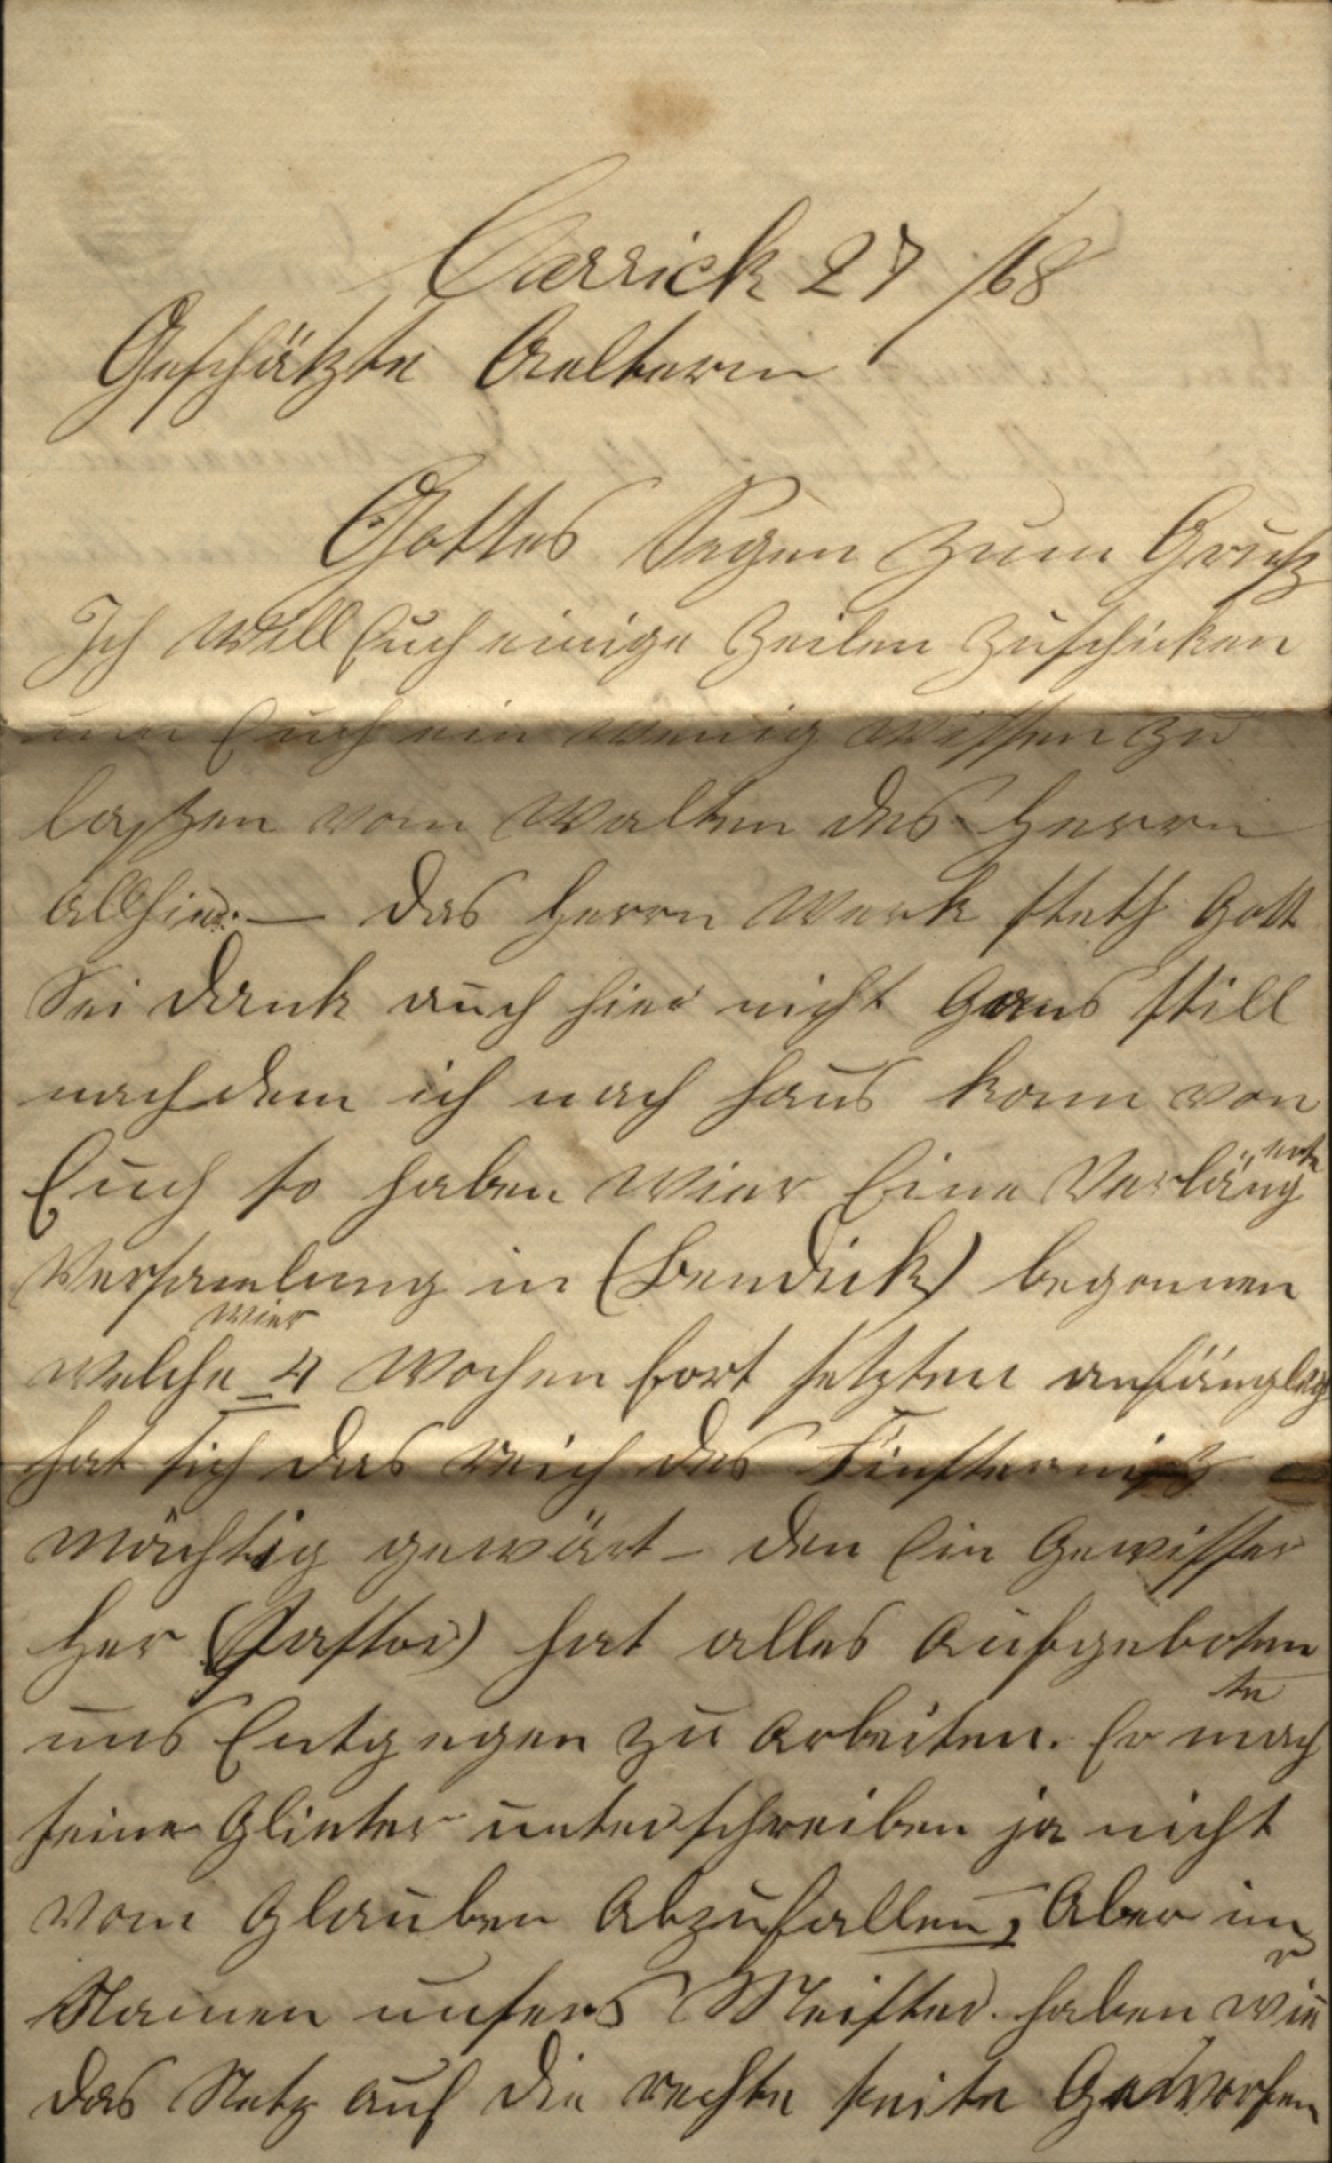 Carrick 27/68
Geschätzte Aeltern
Gottes Segen zum Grusz
Ich will Euch einige Zeilen zuschicken
um Euch ein wenig wissen zu
laszen vom Walten des Herrn
allhier. — das Herrn Werk steth Gott
Sei Dank auch hier nicht Gans still
nachdem ich nach Haus kam von
Euch so haben Wier Eine Verlängerte
Versamlung in (Bendick) begonnen
welche wier 4 Wochen fort setzten anfänglich
hat sich das reich des Finsternisz
mächtig gewärt – den Ein Gewisser
Her (Pastor) hat alles Aufgeboten
uns Entgegen zu Arbeiten. Er machte
seine Glieter unterschreiben ja nicht
vom Glauben Abzufallen, Aber im
Namen unsers Meister haben wier
das Netz auf die rechte seite Geworfen